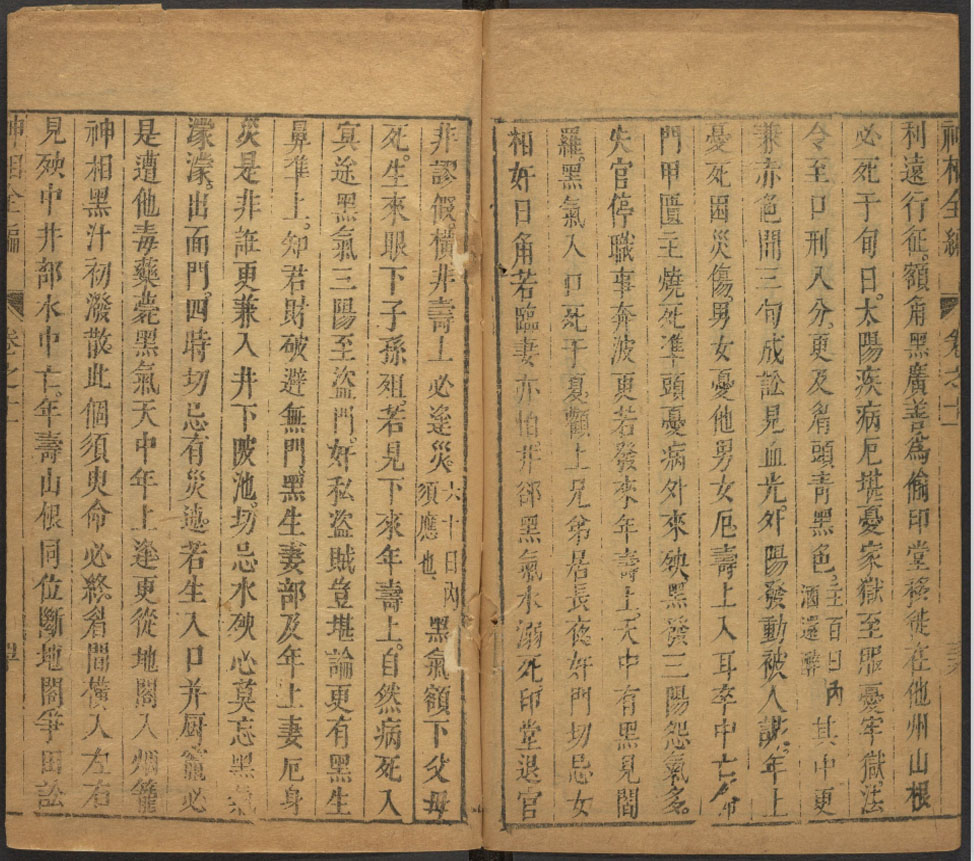 神相全編 卷之十一
利遠行征額角黑廣善為偷印堂移徙在他州山根
必死于旬日太陽疾病厄堪憂家獄至眼憂牢獄法
令至口刑入分更及眉頭青黑色主百日內酒遠醉其中更
兼赤色間三旬成訟見血光外陽發動被人謀年上
憂死困災傷男女憂他男女厄壽上入耳卒中亡
門甲匱主燒死準頭憂病外來殃黑發三陽怨氣多
失官停職事奔波更若發來年壽上天中有黑見閻
羅黑氣入口死于夏顴上兄弟居長夜奸門切忌女
相奸日角若臨妻亦怕井部黑氣水溺死印堂退官
非謬假橫非壽上必逢災六十日內須應也黑氣額下父母
死生來眼下子孫殂若見下來年壽上自然病死入
冥途黑氣三陽至盜門奸私盜賊豈堪論更有黑生
鼻準上知君財破避無門黑生妻部及年上妻厄身
災是非誰更兼入井下陂池切忌水殃心莫忘黑氣
濛濛出面門四時切忌有災迍若生入口并厨竈必
是遭他毒藥薨黑氣天中年上逢更從地閣入烟籠
神相黑汁初潑散此個須臾命必終眉間橫入左右
見殃中井部水中亡年壽山根同位斷地閣爭田訟
神相全編 卷之十一